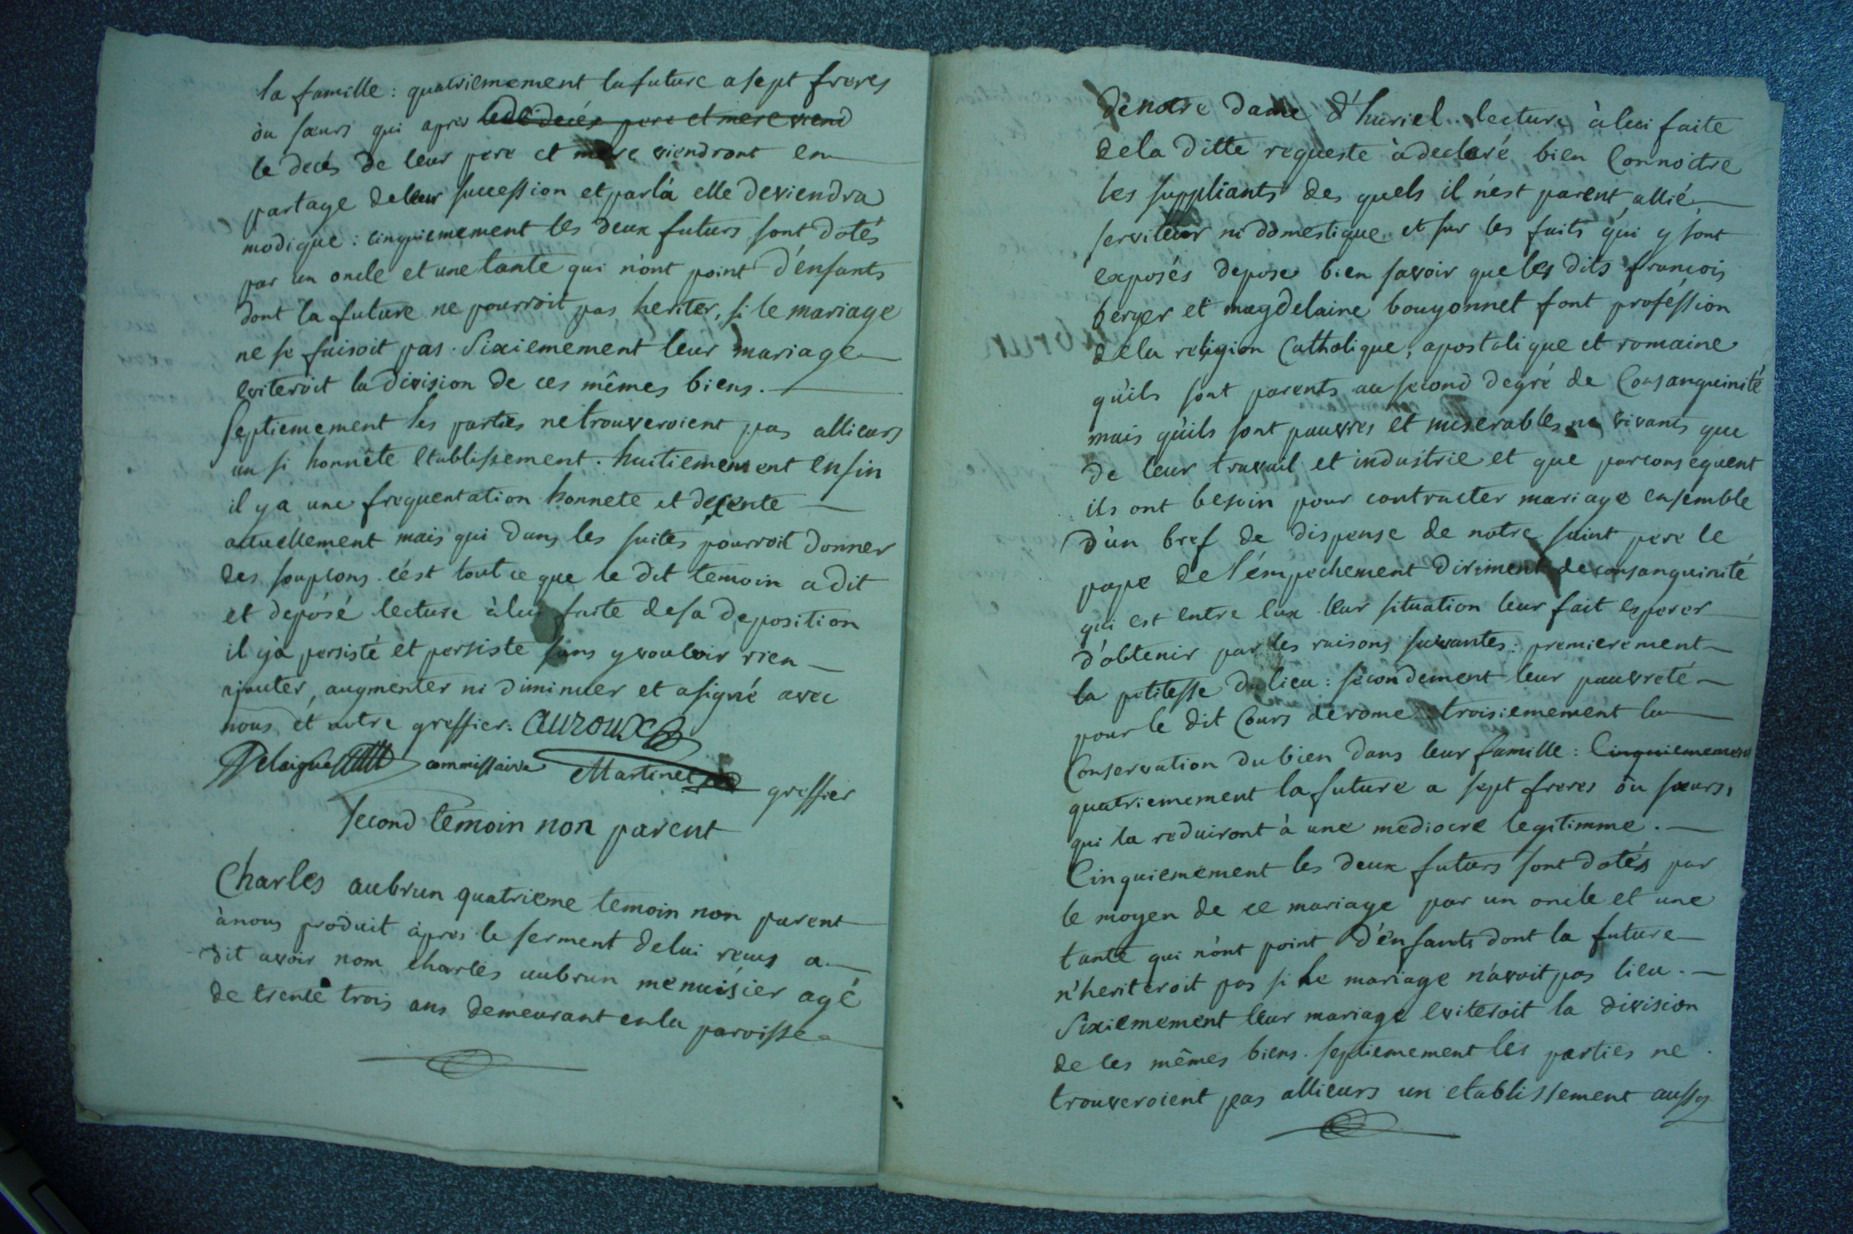 la famille : quatriemement la future a sept freres
ou sœurs qui apres le decés pere et mere viend
le decés de leur pere et mere viendront en
partage de leur succession et par la elle deviendra
modique : cinquiemement les deux futurs sont dotés
par un oncle et une tante qui n'ont point d'énfants
dont la future ne pourroit pas heriter, si le mariage
ne se faisoit pas. Sixiemement leur mariage
eviteroit la division de ces mêmes biens.
Septiemement les parties ne trouveroient pas allieurs
un si honnête etablissement. huitiemement enfin
il y a une frequentation honnete et decente
actuellement mais qui dans les suites pourroit donner
des soupcons. c'ést tout ce que le dit temoin a dit
et deposé lecture à lui faite de sa deposition
il y à persisté et persiste sans y vouloir rien
ajouter, augmenter ni diminuer et a signé avec
nous et notre greffier. auroux
Delaigue commissaire Martinet greffier
Second temoin non parent
Charles aubrun quatrieme temoin non parent
à nous produit àpres le serment de lui reçus a
dit avoir nom charles aubrun menuisier agé
de trente trois ans demeurant en la paroisse
de notre dame d'huriel. lecture à lui faite
de la ditte requeste à declaré bien connoitre
les suppliants des quels il n'est parent allié
serviteur ni domestique et sur les faits qui y sont
exposés depose bien savoir que les dits francois
berger et magdelaine bougonnet font proféssion
de la religion Catholique, apostolique et romaine
qu'ils sont parents au second degré de Consanguinité
mais qu'ils sont pauvres et miserables ne vivants que
de leur travail et industrie et que par consequent
ils ont besoin pour contracter mariage ensemble
d'un bref de dispense de notre saint pere le
pape de l'émpechement diriment de consanguinité
qui est entre eux leur situation leur fait esperer
d'obtenir par les raisons suivantes : premierement
la petitesse du lieu : secondement leur pauvreté
pour le dit Cours de rome troisiemement la
Conservation du bien dans leur famille : Cinquiemement
quatriemement la future a sept freres ou sœurs,
qui la reduiront à une mediocre legitimme.
Cinquiemement les deux futurs sont dotés par
le moyen de ce mariage par un oncle et une
tante qui n'ont point d'énfants dont la future
n'heriteroit pas si le mariage n'avoit pas lieu.
Sixiemement leur mariage eviteroit la division
de ces mêmes biens. septiemement les parties ne
trouveroient pas allieurs un etablissement aussy